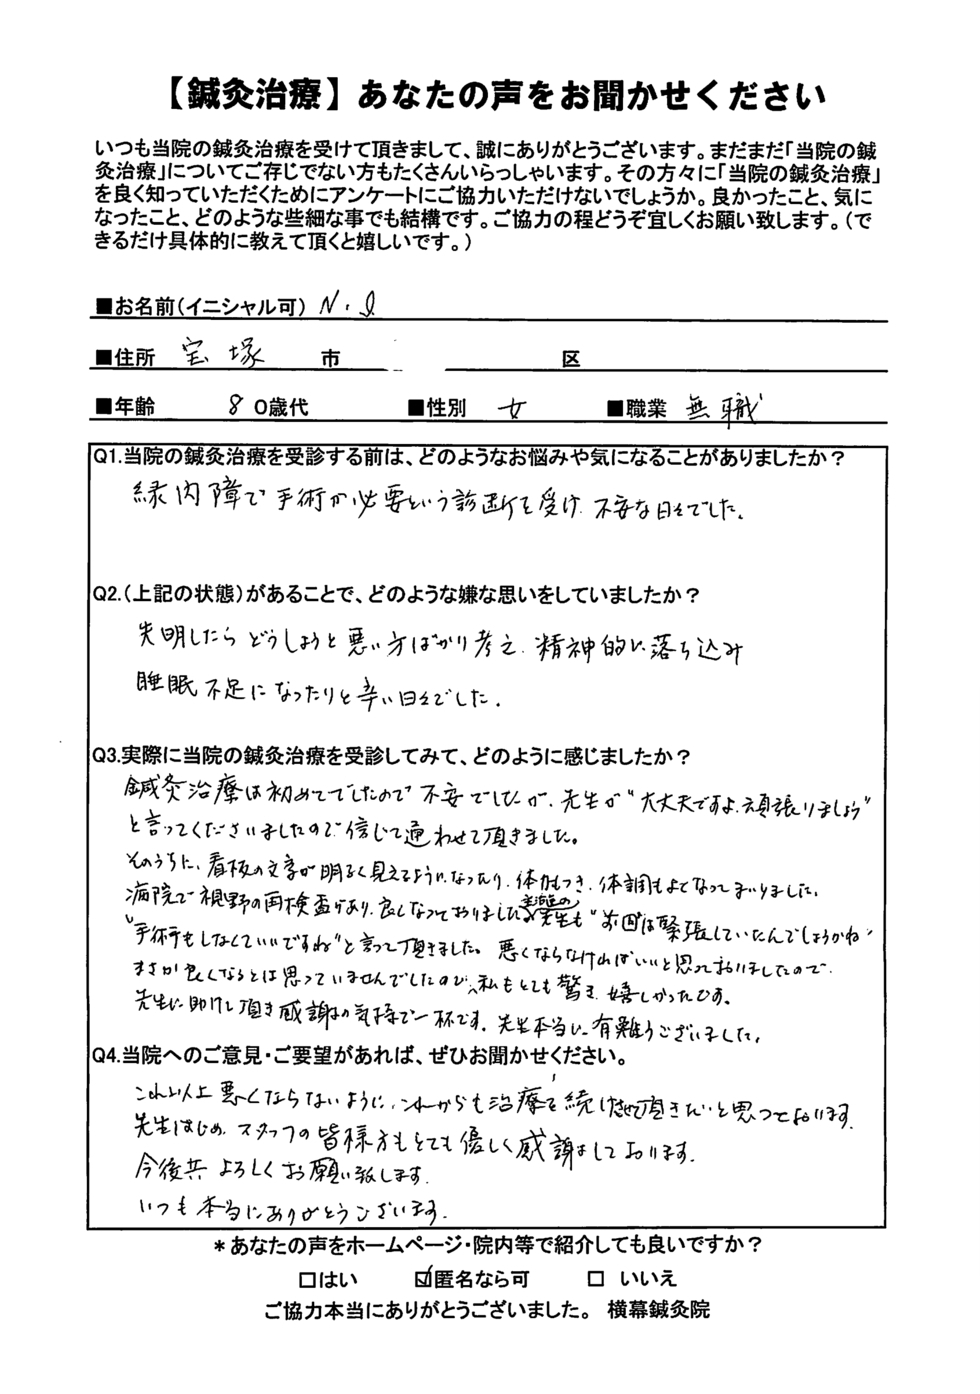 【鍼灸治療】あなたの声をお聞かせください
いつも当院の鍼灸治療を受けて頂きまして、誠にありがとうございます。まだまだ「当院の鍼
灸治療」についてご存じでない方もたくさんいらっしゃいます。その方々に「当院の鍼灸治療」
を良く知っていただくためにアンケートにご協力いただけないでしょうか。良かったこと、気に
なったこと、どのような些細な事でも結構です。ご協力の程どうぞ宜しくお願い致します。（で
きるだけ具体的に教えて頂くと嬉しいです。）
■お名前(イニシャル可) N.I
■住所 宝塚 市 区
■年齢 8 0歳代 ■性別 女 ■職業 無職
Q1.当院の鍼灸治療を受診する前は、どのようなお悩みや気になることがありましたか？
緑内障で手術が必要という診断を受け、不安な日々でした。
Q2.（上記の状態）があることで、どのような嫌な思いをしていましたか？
失明したらどうしようと悪い方ばかり考え、精神的に落ち込み
睡眠不足になったりと辛い日々でした。
Q3.実際に当院の鍼灸治療を受診してみて、どのように感じましたか？
鍼灸治療は初めてでしたので不安でしたが、先生が"大丈夫ですよ、頑張りましょう"
と言ってくださいましたので信じて通わせて頂きました。
そのうちに、看板の文字が明るく見えるようになったり、体力もつき、体調もよくなってまいりました。
病院で視野の再検査があり、良くなっておりました。主治医の先生も"前回は緊張していたんでしょうかね、
手術もしなくていいですね"と言って頂きました。悪くならなければいいと思っておりましたので、
まさか良くなるとは思っていませんでしたので、私もとても驚き、嬉しかったです。
先生に助けて頂き感謝の気持で一杯です。先生本当に有難うございました。
Q4.当院へのご意見・ご要望があれば、ぜひお聞かせください。
これ以上悪くならないように、これからも治療を続けさせて頂きたいと思っております。
先生はじめ、スタッフの皆様方もとても優しく感謝しております。
今後共よろしくお願い致します。
いつも本当にありがとうございます。
＊あなたの声をホームページ・院内等で紹介しても良いですか？
□はい ☑匿名なら可 □ いいえ
ご協力本当にありがとうございました。 横幕鍼灸院